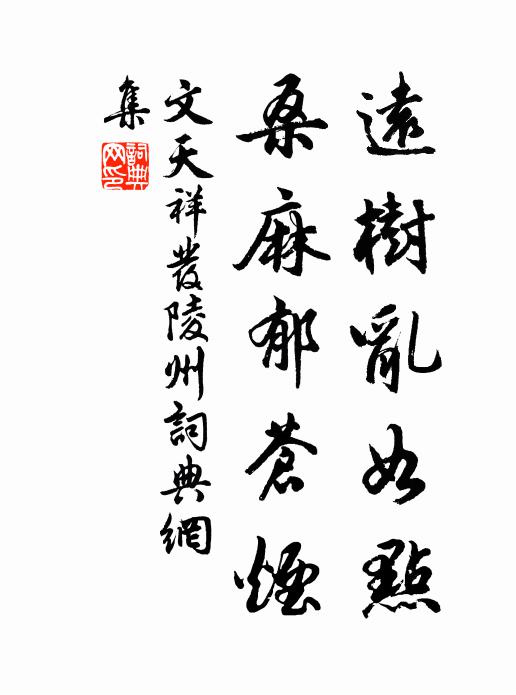 遠樹亂如點
桑麻郁蒼煙
文天祥發陵州詞典網
集
詞典網印